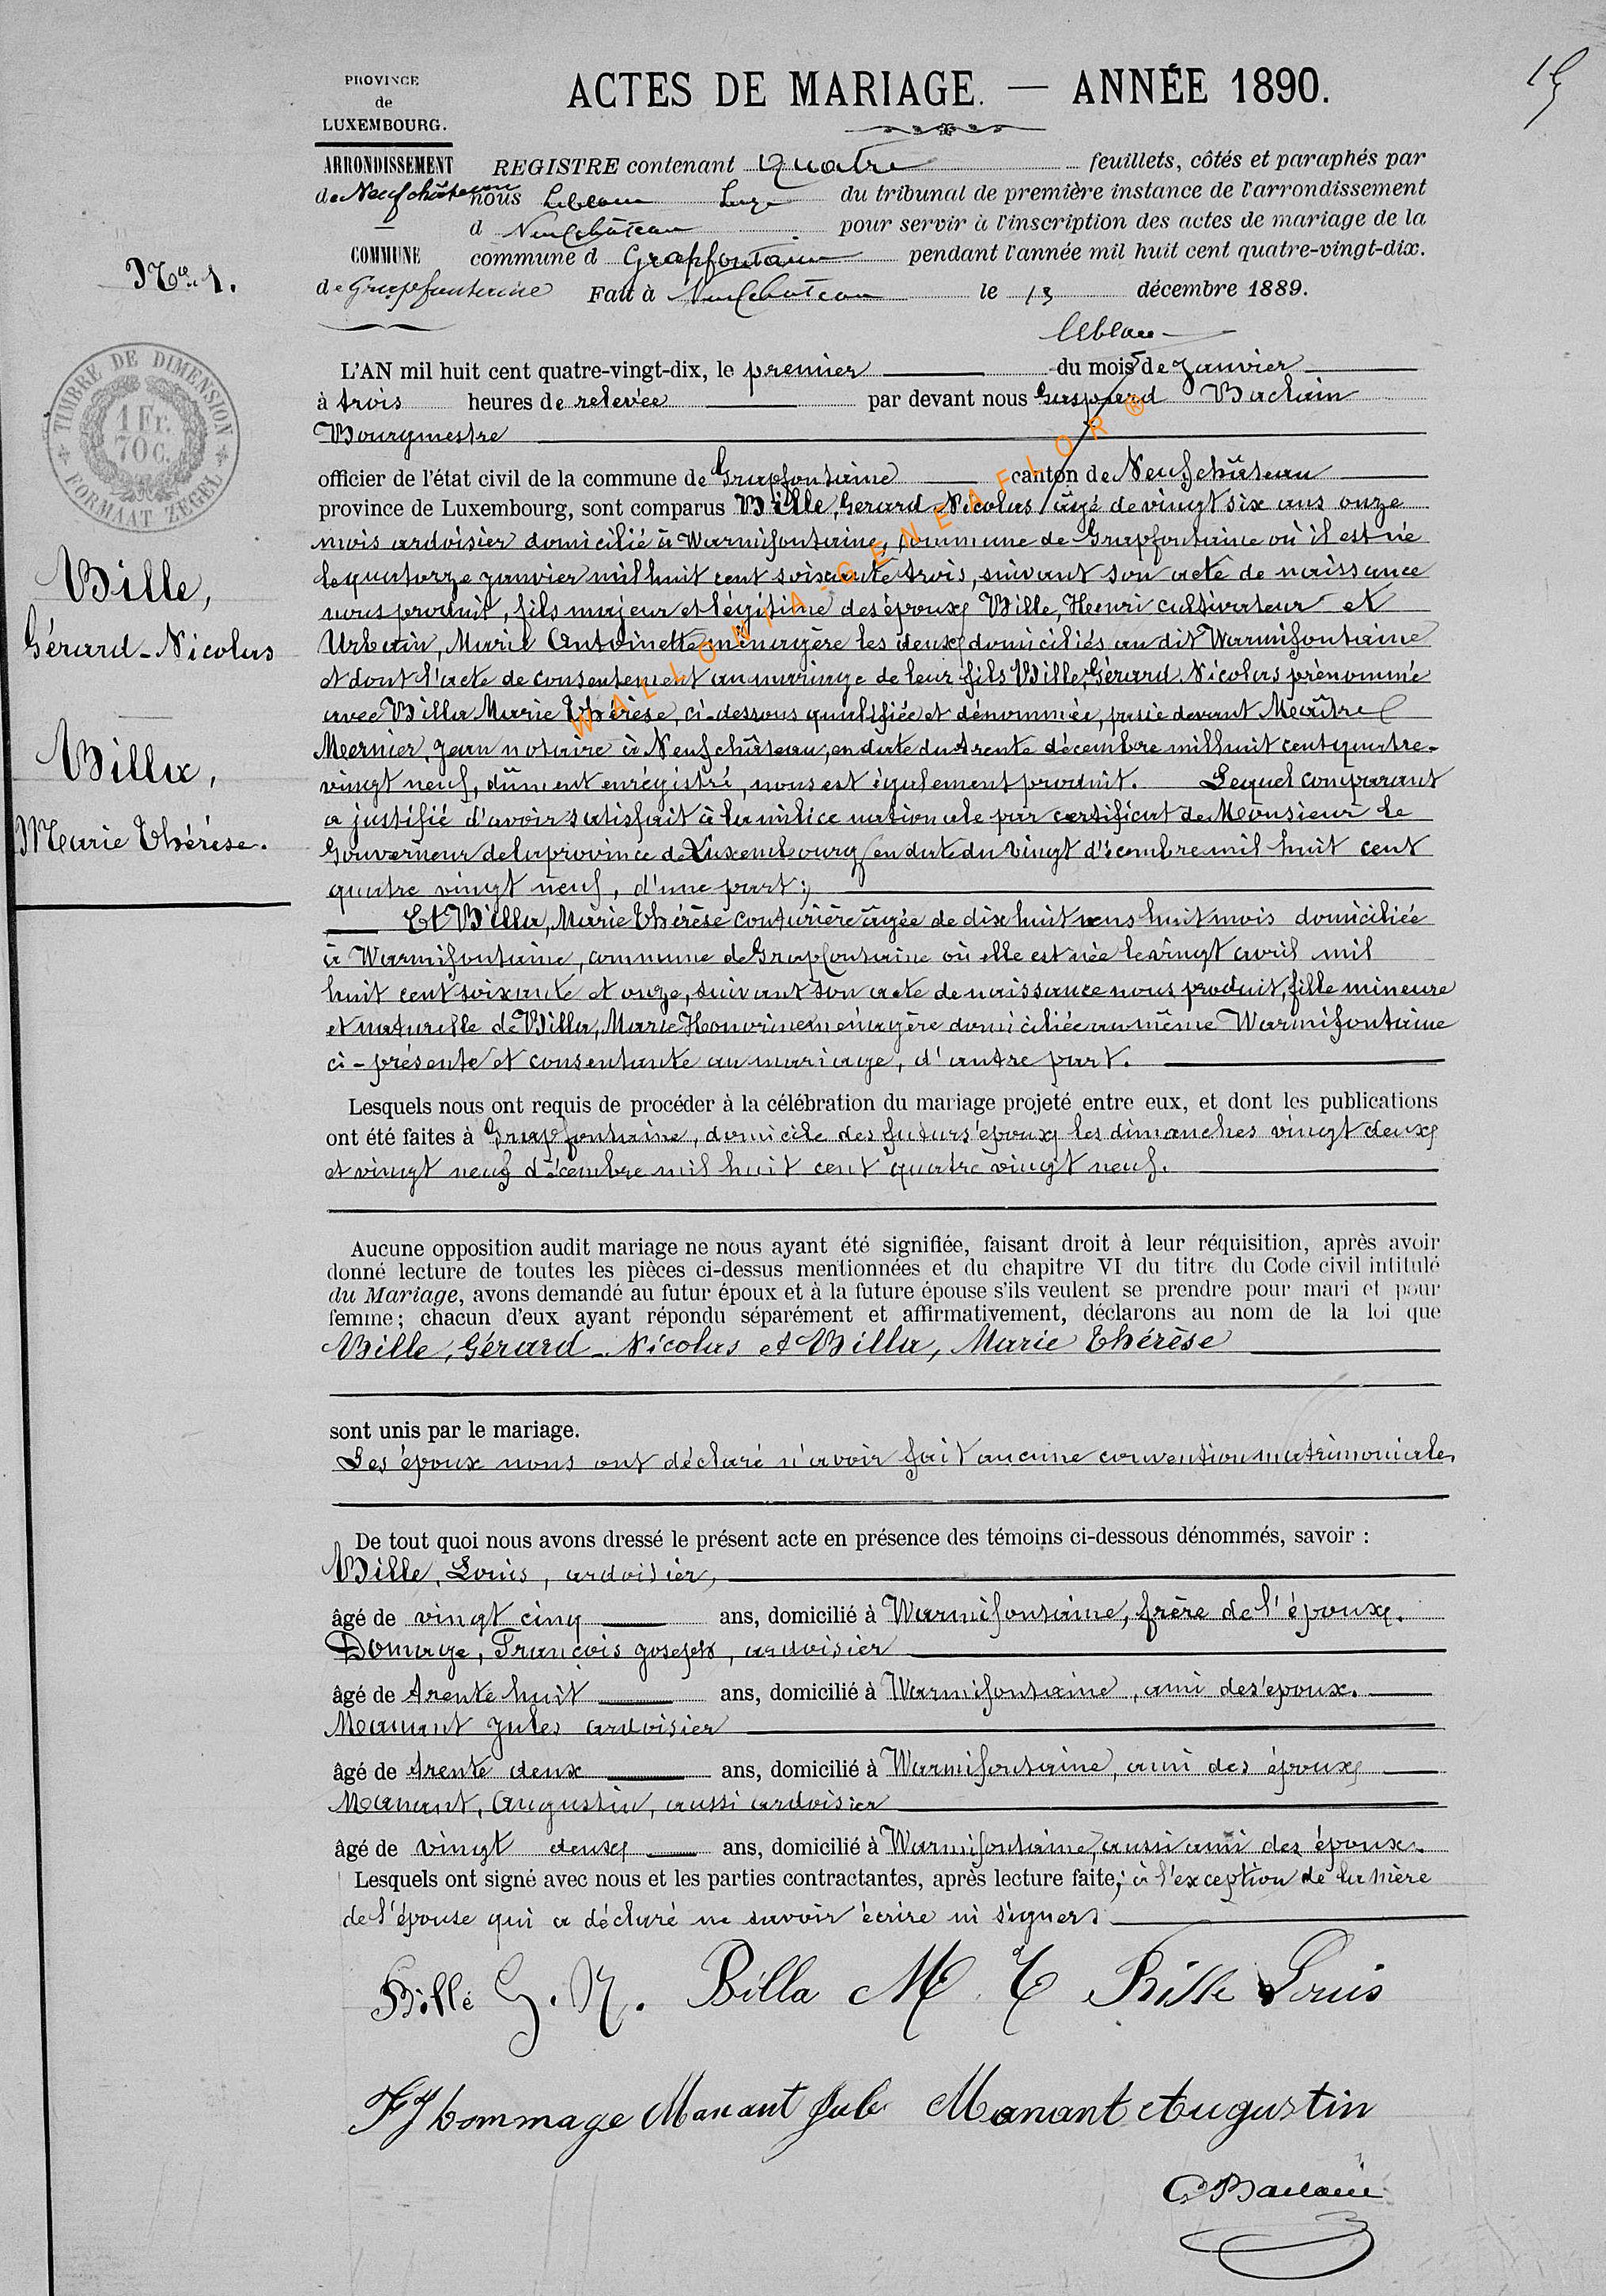 PROVINCE
de
LUXEMBOURG.
ACTES DE MARIAGE. — ANNÉE 1890.
ARRONDISSEMENT
de Neufchâteau
COMMUNE
de Grapfontaine
REGISTRE contenant quatre feuillets, côtés et paraphés par
nous Leblanc Juge du tribunal de première instance de l'arrondissement
d Neufchâteau pour servir à l'inscription des actes de mariage de la
commune d Grapfontaine pendant l'année mil huit cent quatre-vingt-dix.
Fait à Neufchateau le 13 décembre 1889.
Leblanc
No. 1.
TIMBRE DE DIMENSION
1 Fr.
70 C.
FORMAAT ZEGEL
Bille,
Gérard-Nicolas
Billa,
Marie Thérèse.
L'AN mil huit cent quatre-vingt-dix, le premier du mois de Janvier
à trois heures de relevée par devant nous Gaspard Baclain
Bourgmestre
officier de l'état civil de la commune de Grapfontaine canton de Neufchâteau
province de Luxembourg, sont comparus Bille, Gerard-Nicolas âgé de vingt six ans onze
mois ardoisier domicilié à Warmifontaine, commune de Grapfontaine où il est né
le quatorze janvier mil huit cent soixante trois, suivant son acte de naissance
nous produit, fils majeur et légitime des époux Bille, Henri cultivateur et
Urbain, Marie Antoinette ménagère les deux domiciliés au dit Warmifontaine
et dont l'acte de consentement au mariage de leur fils Bille, Gérard Nicolas prénommé
avec Billa Marie Thérèse, ci-dessous qualifiée et dénommée, passé devant Maître
Mernier, Jean notaire à Neufchâteau, en date du trente décembre mil huit cent quatre-
vingt neuf, dûment enrégistré, nous est également produit. Lequel comparant
a justifié d'avoir satisfait à la milice nationale par certificat de Monsieur le
Gouverneur de la province de Luxembourg en date du vingt décembre mil huit cent
quatre vingt neuf, d'une part;
Et Billa, Marie Thérèse couturière âgée de dix huit ans huit mois domiciliée
à Warmifontaine, commune de Grapfontaine où elle est née le vingt avril mil
huit cent soixante et onze, suivant son acte de naissance nous produit, fille mineure
et naturelle de Billa, Marie Honorine ménagère domiciliée au même Warmifontaine
ci-présente et consentante au mariage, d'autre part.
Lesquels nous ont requis de procéder à la célébration du mariage projeté entre eux, et dont les publications
ont été faites à Grapfontaine, domicile des futurs époux les dimanches vingt deux
et vingt neuf décembre mil huit cent quatre vingt neuf.
Aucune opposition audit mariage ne nous ayant été signifiée, faisant droit à leur réquisition, après avoir
donné lecture de toutes les pièces ci-dessus mentionnées et du chapitre VI du titre du Code civil intitulé
du Mariage, avons demandé au futur époux et à la future épouse s'ils veulent se prendre pour mari et pour
femme; chacun d'eux ayant répondu séparément et affirmativement, déclarons au nom de la loi que
Bille, Gérard-Nicolas et Billa, Marie Thérèse
sont unis par le mariage.
Les époux nous ont déclaré n'avoir fait aucune convention matrimoniales
De tout quoi nous avons dressé le présent acte en présence des témoins ci-dessous dénommés, savoir :
Bille, Louis, ardoisier,
âgé de vingt cinq ans, domicilié à Warmifontaine, frère de l'époux.
Domage, François Joseph, ardoisier
âgé de trente huit ans, domicilié à Warmifontaine, ami des époux.
Manant Jules ardoisier
âgé de trente deux ans, domicilié à Warmifontaine, ami des époux
Manant, Augustin, aussi ardoisier
âgé de vingt deux ans, domicilié à Warmifontaine, aussi ami des époux.
Lesquels ont signé avec nous et les parties contractantes, après lecture faite, à l'exception de la mère
de l'épouse qui a déclaré ne savoir écrire ni signer.
Bille G. N. Billa M T Bille Louis
FJ Dommage Manant Jule Manant Augustin
G Baclain
WALLONIA-GENEAFLOR ®